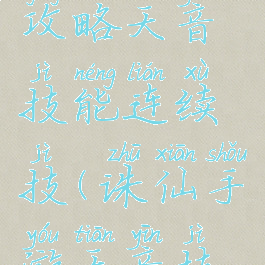 攻略天音
jì néng lián xù
技能连续
jì zhū xiān shǒu
技(诛仙手
yóu tiān yīn jì
游天音技